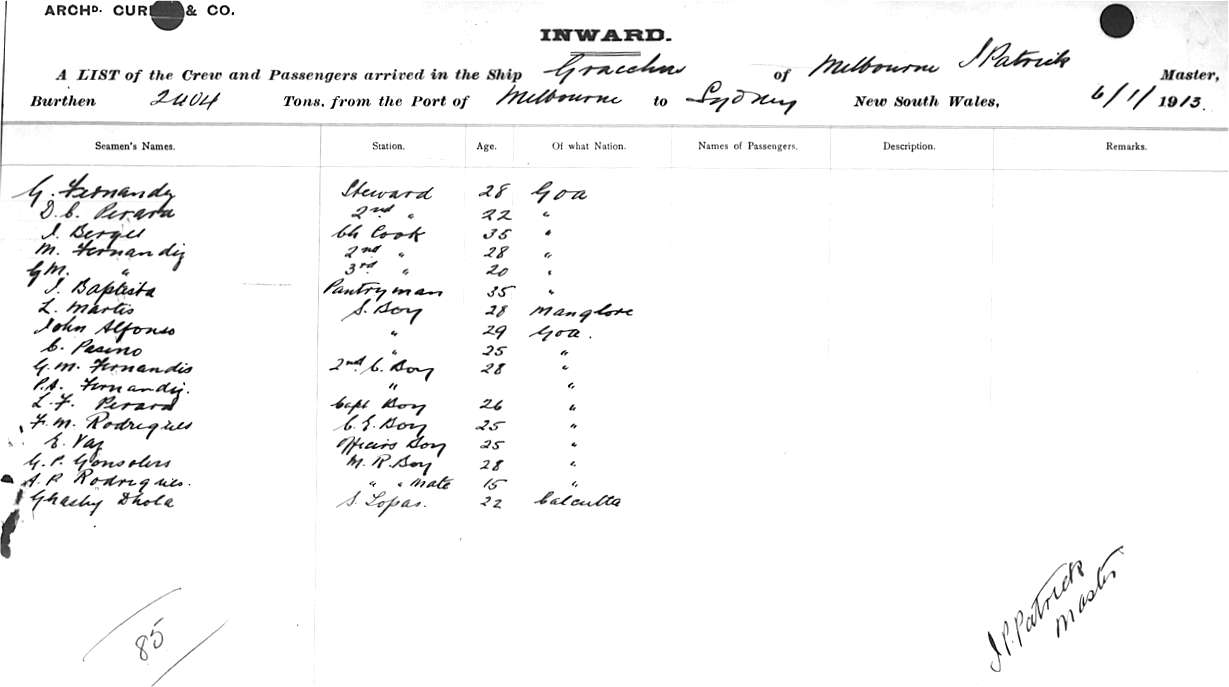 ARCHD. CUR & CO.
INWARD.
A LIST of the Crew and Passengers arrived in the Ship Gracchus of Melbourne J Patrick Master,
Burthen 2404 Tons, from the Port of Melbourne to Sydney New South Wales, 6/1/1913.
Seamen's Names. Station. Age. Of what Nation. Names of Passengers. Description. Remarks.
G. Fernandez Steward 28 Goa
D. C. Perara 2nd " 22 "
Ch Cook 35 "
M. Fernandiz 2nd " 28 "
G M. " 3rd " 20 "
J. Baptista Pantryman 35 "
L. Martis S. Boy 28 Manglore
John Alfonso " 29 Goa.
C. Pasino " 25 "
G. M. Fernandis 2nd C. Boy 28 "
P.A. Fernandiz. " "
L. F. Perara Capt Boy 26 "
F. M. Rodrigues C. E. Boy 25 "
E. Vaz Officirs Boy 25 "
G. P. M. R. Boy 28 "
A. P. Rodrigues. " " Mate 15 "
Dhola S. Topas. 22 Calcutta
J. P. Patrick
Master
85